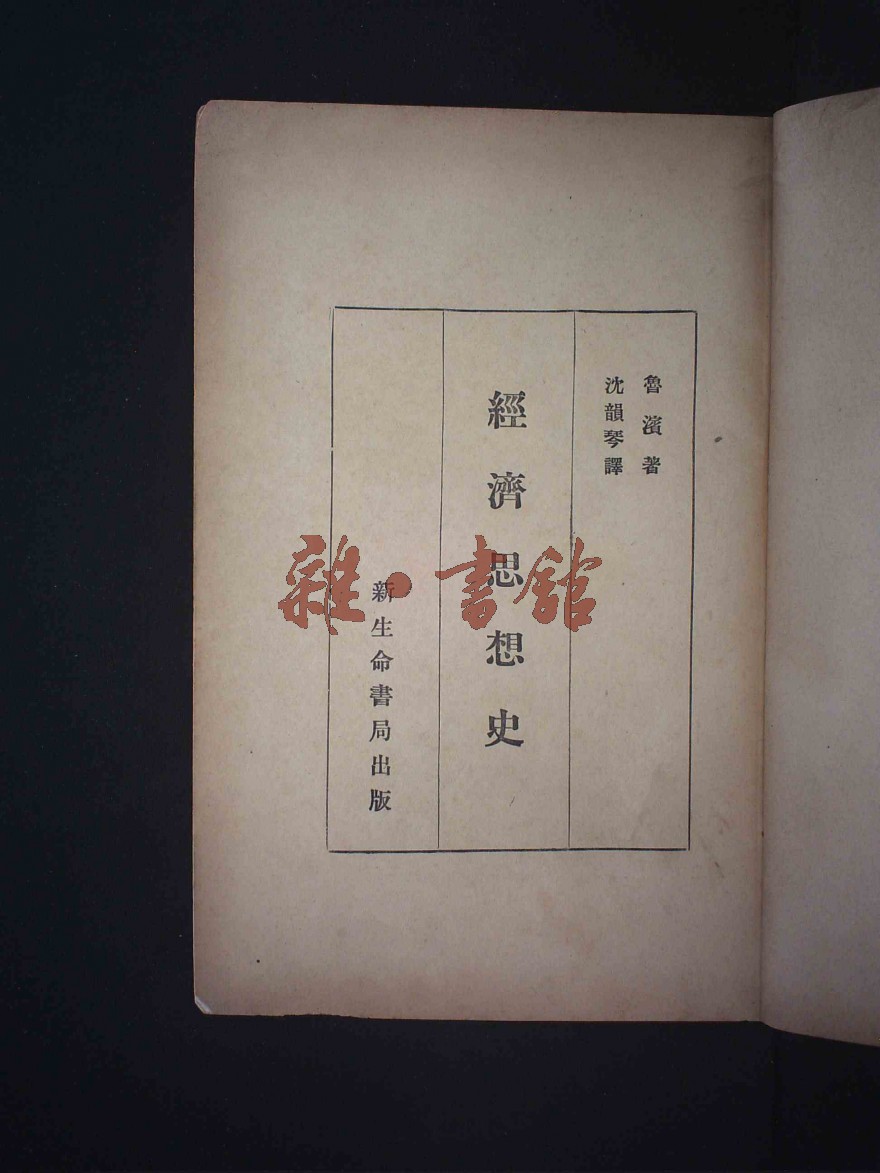 魯濱著
沈韻琴譯
經濟思想史
新生命書局出版
雜·書館